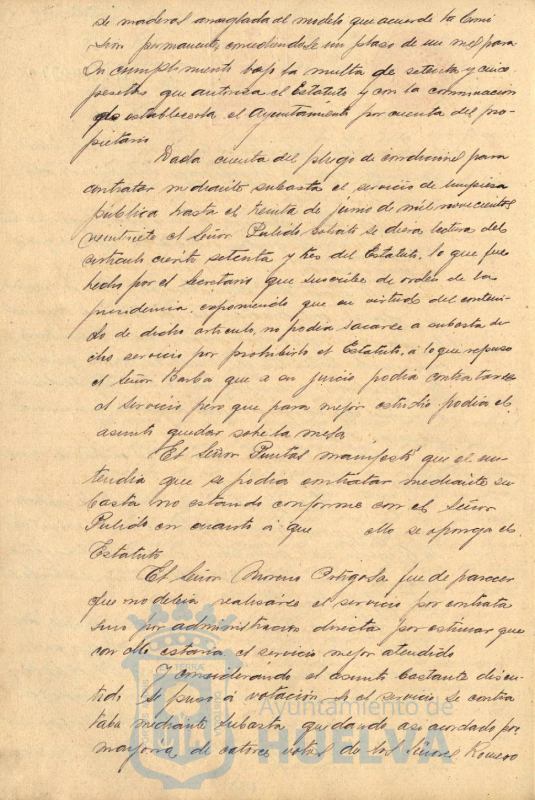 se maderas arreglada del modelo que acuerde la Comi
sion permanente concediendole un plazo de un mes para
su cumplimiento bajo la multa de setenta y cinco
pesetas que autoriza el Estatuto y con la conminacion
de establecerla el Ayuntamiento por cuenta del pro-
pietario
Dada cuenta del pliego de condiciones para
contratar mediante subasta el servicio de limpieza
pública hasta el treinta de junio de mil novecientos
veintisiete el Señor Pulido solicitó se diera lectura del
articulo ciento setenta y tres del Estatuto, lo que fue
hecho por el Secretario que suscribe de orden de la
presidencia, exponiendo que en virtud del conteni-
do de dicho articulo, no podia sacarse a subasta di-
cho servicio por prohibirlo el Estatuto, á lo que repuso
el Señor Barba que a su juicio podia contratarse
el servicio pero que para mejor estudio podia el
asunto quedar sobre la mesa.
El Señor Puntas manifestó que el en-
tendia que se podia contratar mediante su-
basta no estando conforme con el Señor
Pulido en cuanto á que ello se oponga el
Estatuto
El Señor Moreno Ortega fue de parecer
que no debia realizarse el servicio por contrata
sino por administracion directa por estimar que
con ello estaria el servicio mejor atendido
Y considerando el asunto bastante discu-
tido se puso á votación si el servicio se contra
taba mediante subasta quedando asi acordado por
mayoria de catorce votos de los Señores Romero
Ayuntamiento de
HUELVA